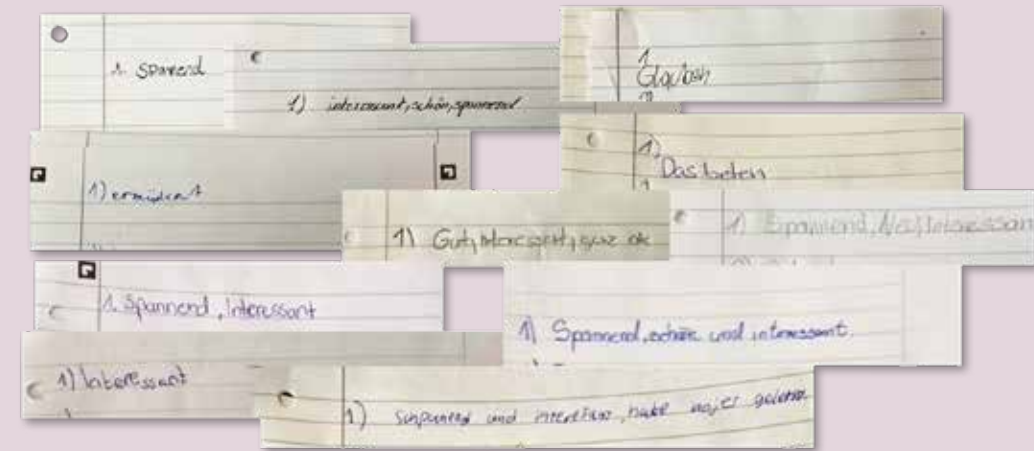 1. Spanend
1) interessant, schön, spannend
1.
Glauben
1) ermüdent
1)
Das beten
1) Gut, Interessant, ganz ok
1) Spannend, Neu, Interessan
1. Spannend, Interessant
1) Spannend, schön und interessant.
1) Interessant
1) Sspanend und interesant, habe najes gelernt.